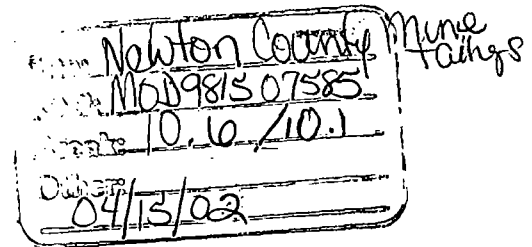 Newton County Mine
tailings
MOD981507585
10.6/10.1
Other:
04/15/02